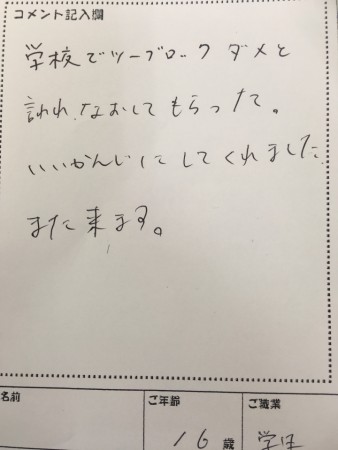 コメント記入欄
学校でツーブロックダメと
言われ、なおしてもらった。
いいかんじにしてくれました
また来ます。
名前
ご年齢
ご職業
16歳
学生